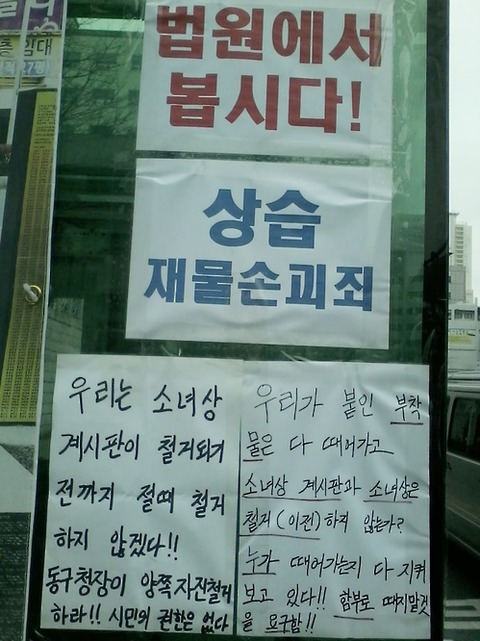 층 임대
법원에서
봅시다!
상습
재물손괴죄
우리는 소녀상
계시판이 철거되기
전까지 절때 철거
하지 않겠다!!
동구청장이 양쪽자진철거
하라!! 시민의 권한은 없다
우리가 붙인 부착
물은 다 떼어가고
소녀상 계시판과 소녀상은
철거(이전)하지 않는가?
누가 떼어가는지 다 지켜
보고 있다!! 함부로 떼지말것
을 요구함!!